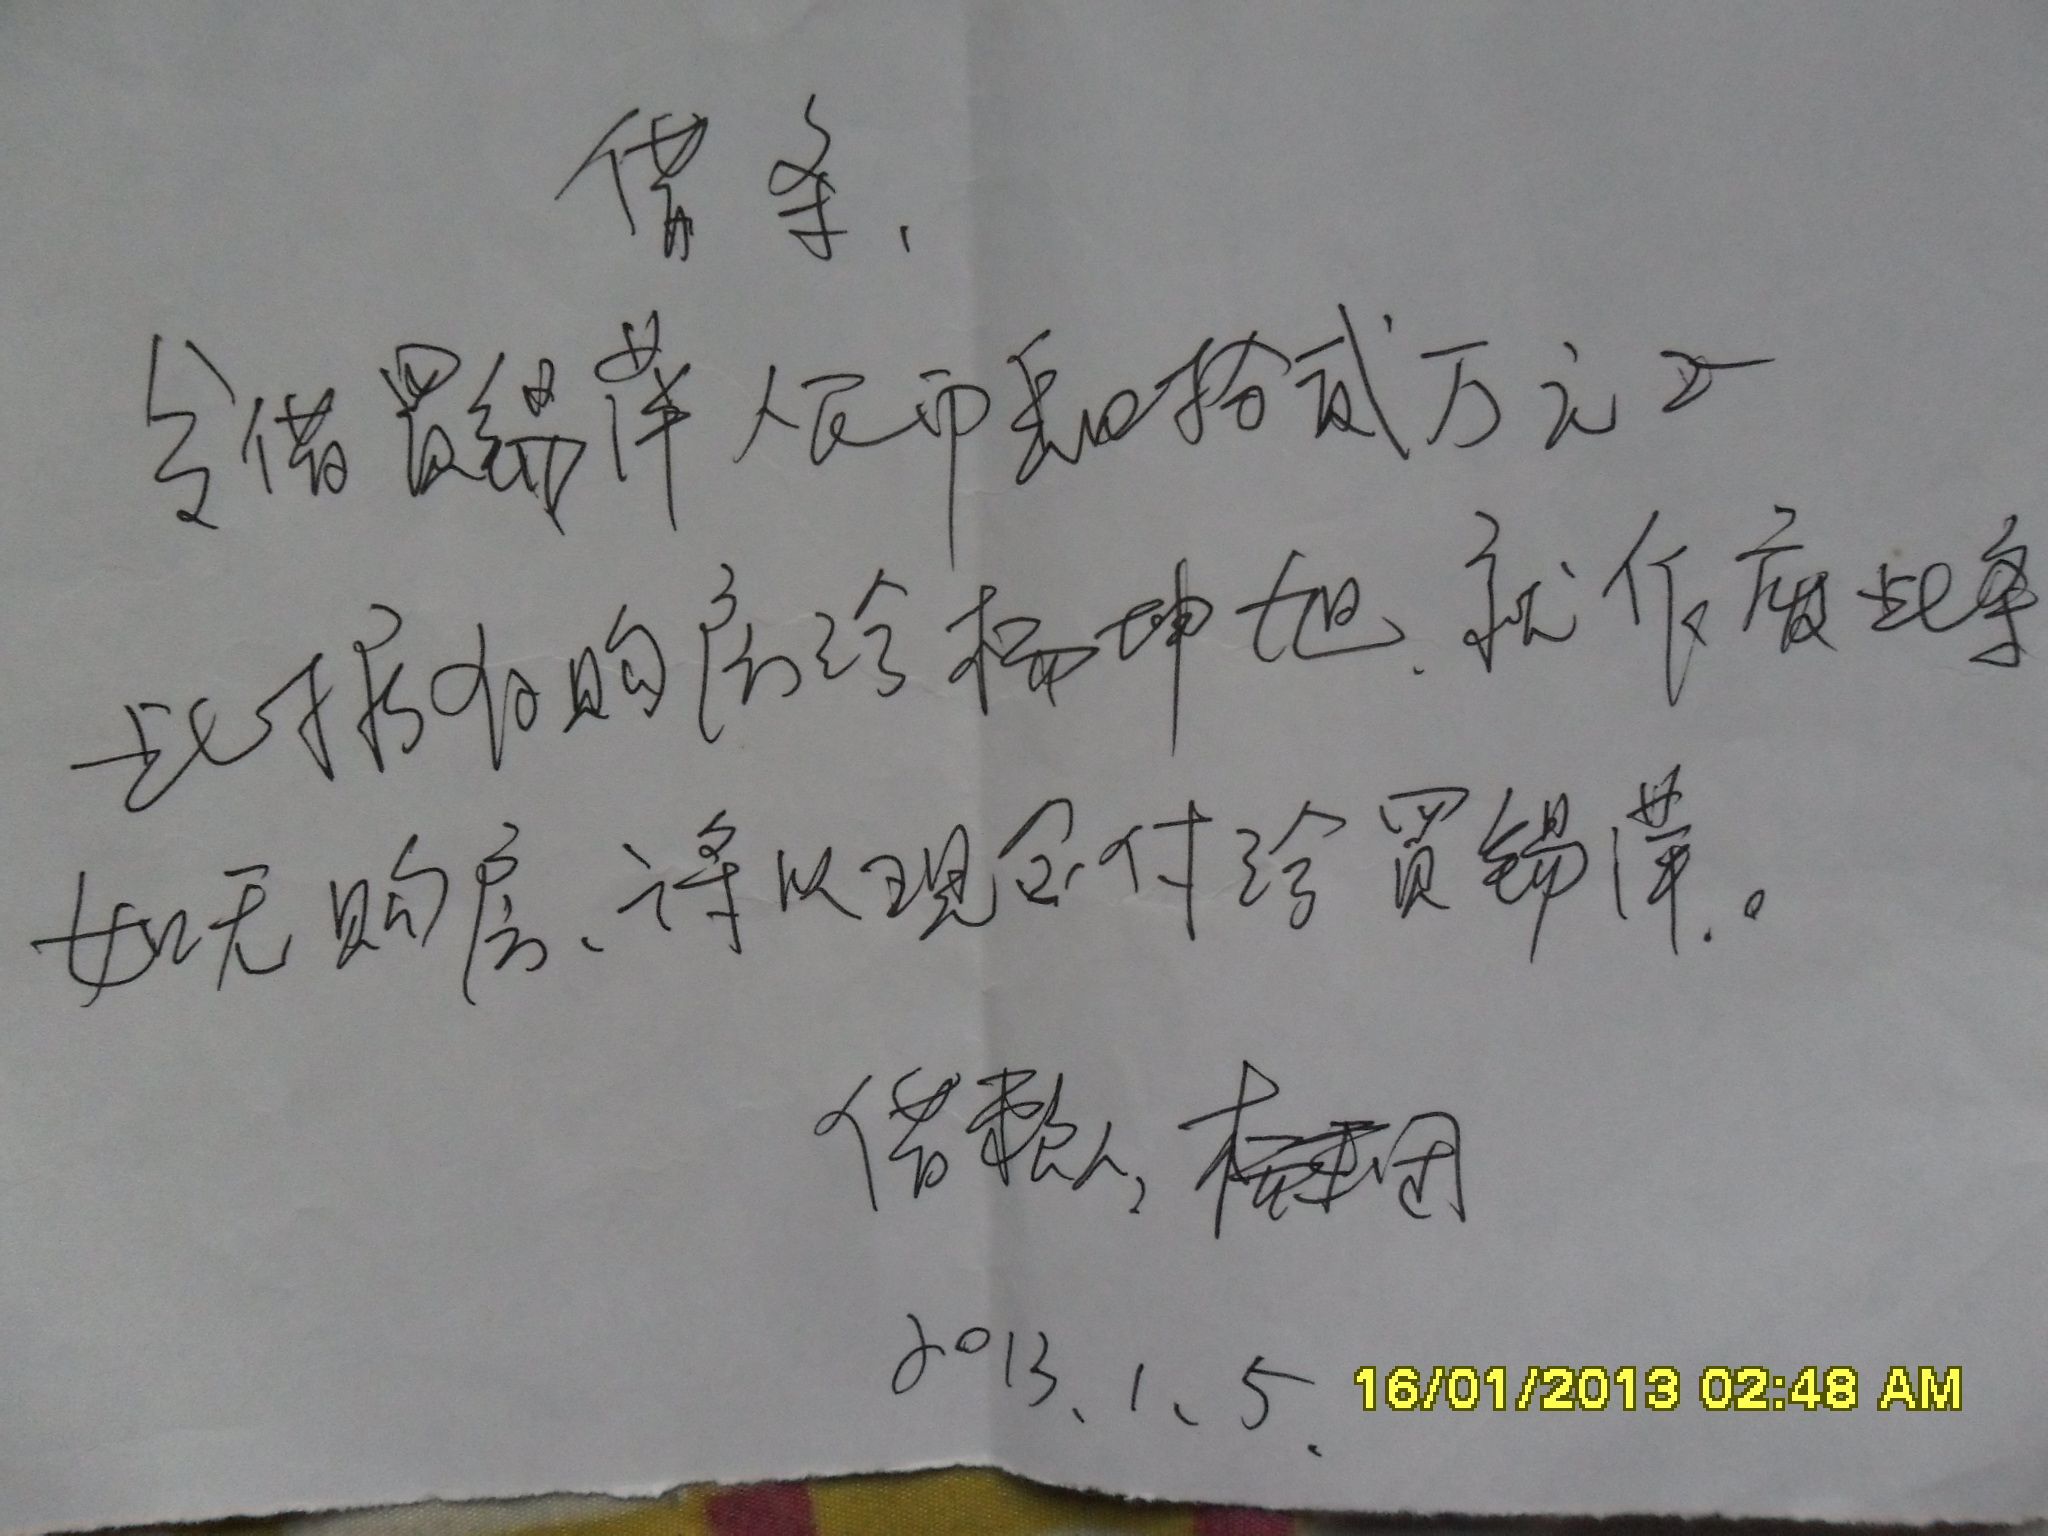 借条、
今借買錫萍人民币和拾贰万元正
此据如购房给杨坤旭、就作废此条
如无购房、请以现金付给買锡萍。
借款人，杨
2013、1、5、
16/01/2013 02:48 AM